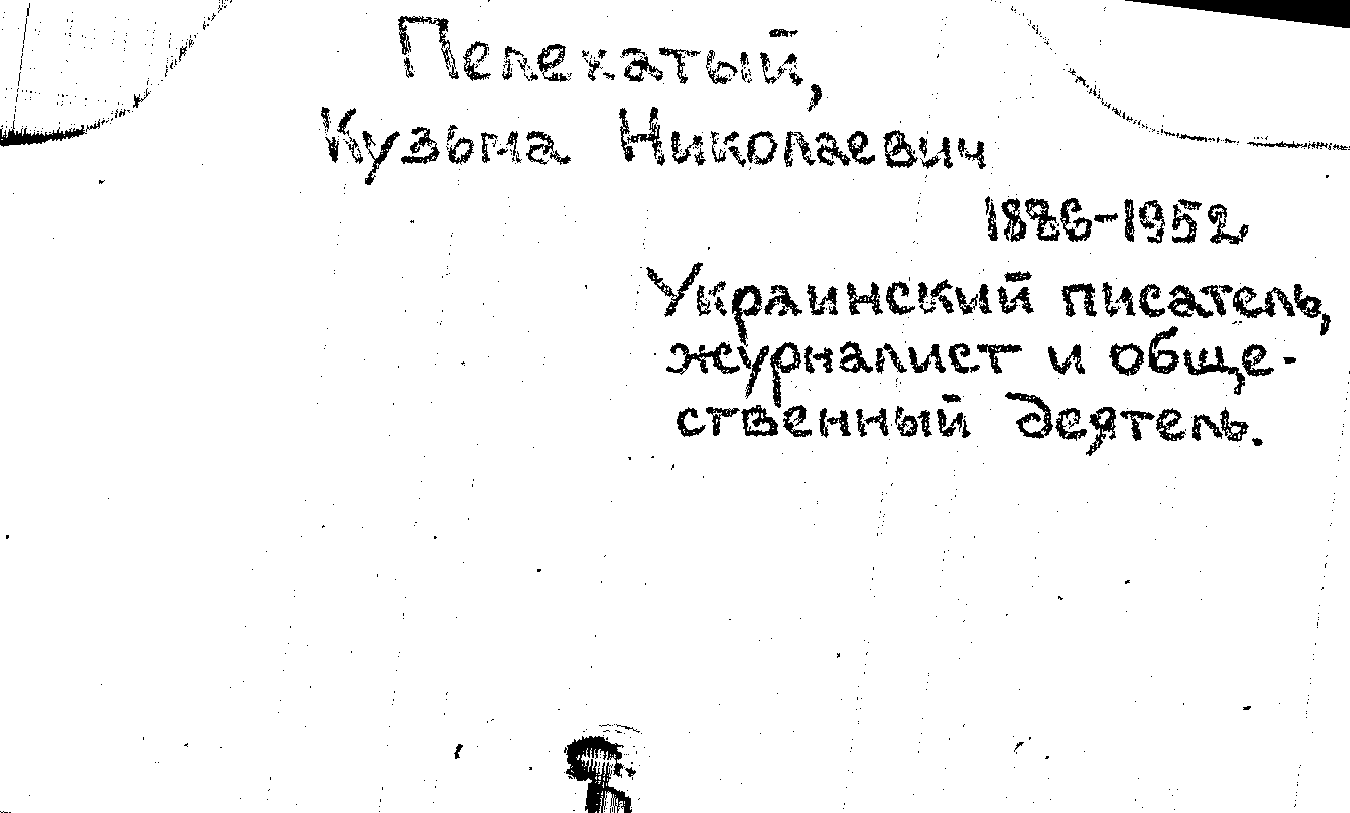 Пелехатый,
Кузьма Николаевич
1886-1952
Украинский писатель,
журналист и обще-
ственный деятель.